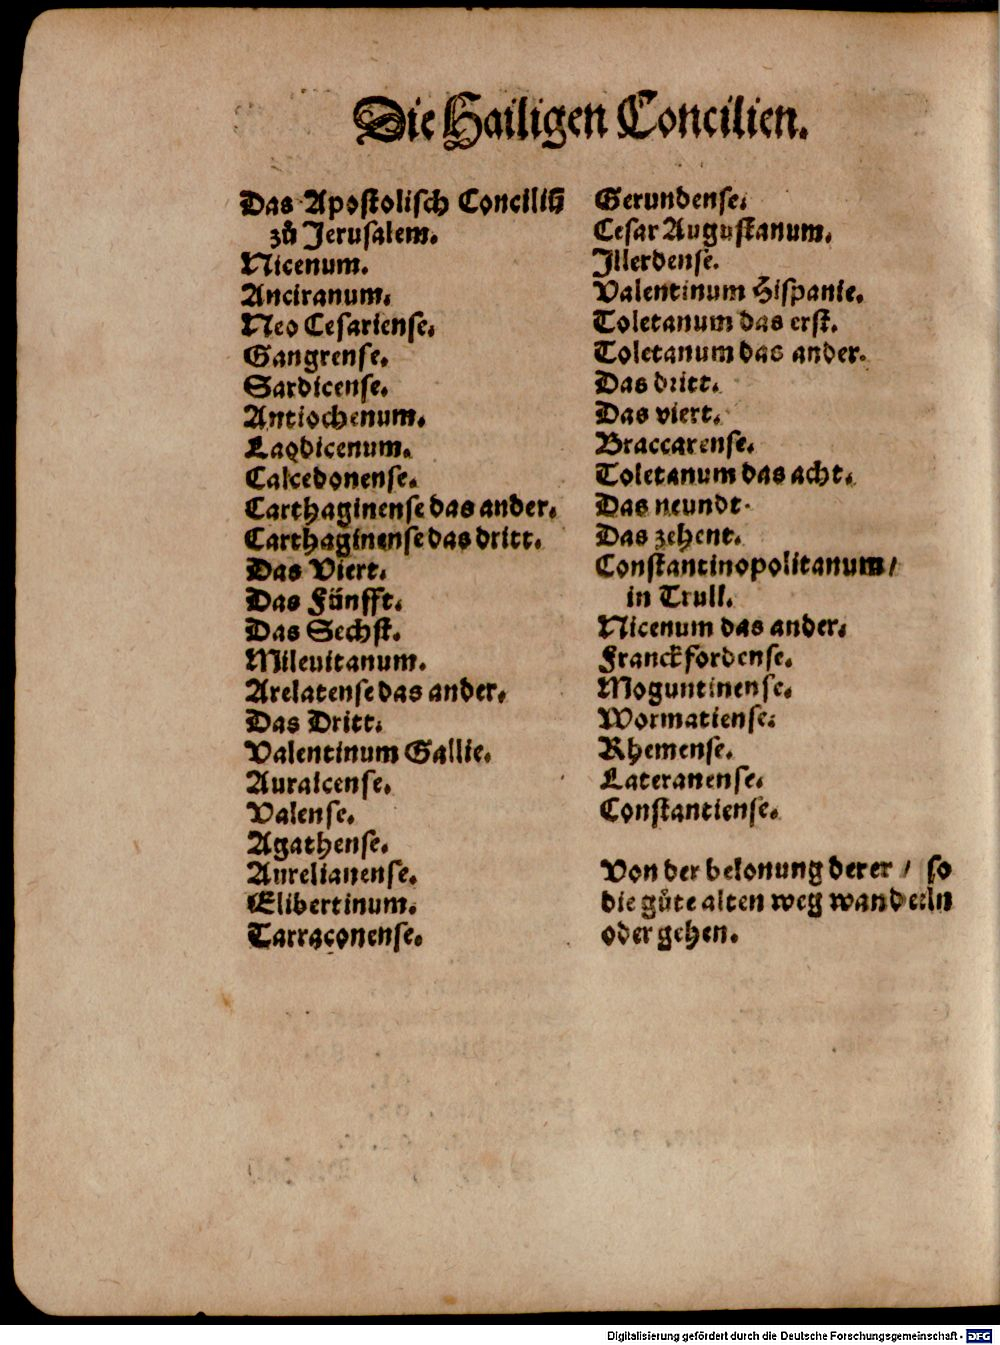 Die Hailigen Concilien.
Das Apostolisch Conciliū
zů Jerusalem.
Nicenum.
Anciranum.
Neo Cesariense.
Gangrense.
Sardicense.
Antiochenum.
Laodicenum.
Calcedonense.
Carthaginense das ander.
Carthaginense das dritt.
Das Viert.
Das Fünfft.
Das Sechst.
Mileuitanum.
Arelatense das ander.
Das Dritt.
Valentinum Gallie.
Auraicense.
Valense.
Agathense.
Aurelianense.
Elibertinum.
Tarraconense.
Gerundense.
Cesar Augustanum.
Illerdense.
Valentinum Hispanie.
Toletanum das erst.
Toletanum das ander.
Das dritt.
Das viert.
Braccarense.
Toletanum das acht.
Das neundt.
Das zehent.
Constantinopolitanum/
in Trull.
Nicenum das ander.
Franckfordense.
Moguntinense.
Wormatiense.
Rhemense.
Lateranense.
Constantiense.
Von der belonung derer / so
die gůte alten weg wanderln
oder gehen.
Digitalisierung gefördert durch die Deutsche Forschungsgemeinschaft - DFG